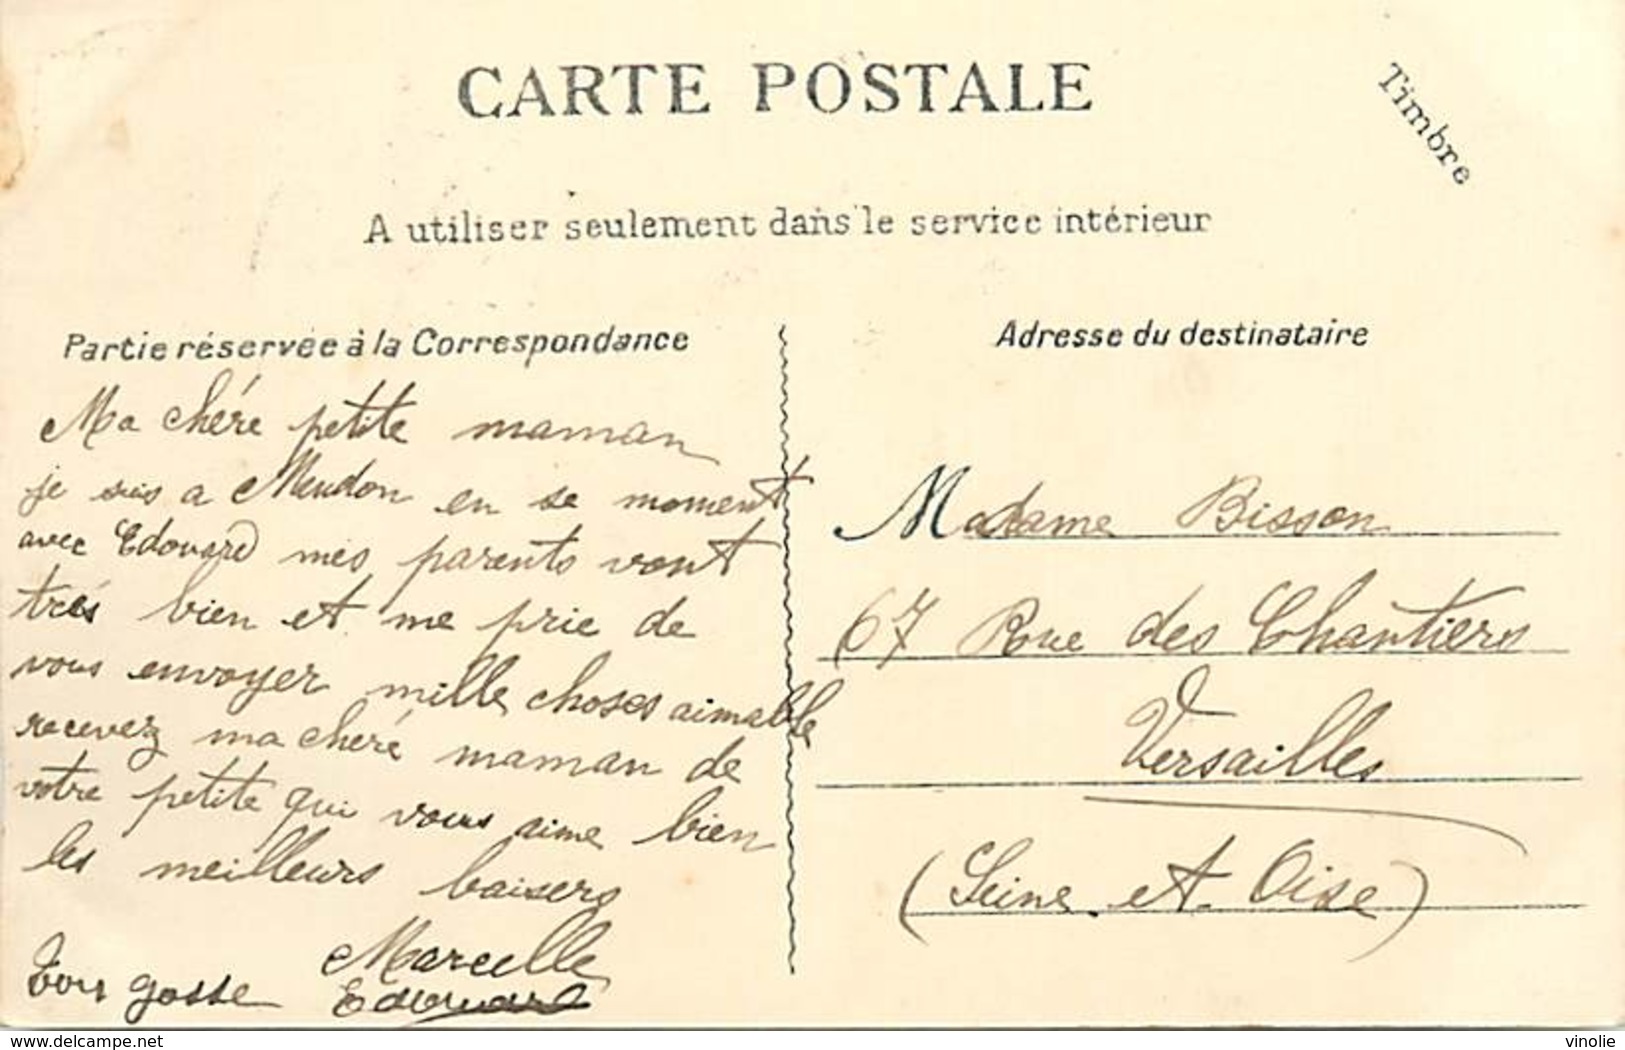 CARTE POSTALE
Timbre
A utiliser seulement dans le service intérieur
Partie réservée à la Correspondance
Ma chére petite maman
je suis a Meudon en se moment
avec Edouard mes parents vont
trés bien et me prie de
vous envoyer mille choses aimable
recevez ma chéré maman de
votre petite qui vous aime bien
les meilleurs baisers
Marcelle
Ton gosse Edouard
Adresse du destinataire
Madame Bisson
67 Rue des Chantiers
Versailles
(Seine et Oise)
delcampe.net
vinolie